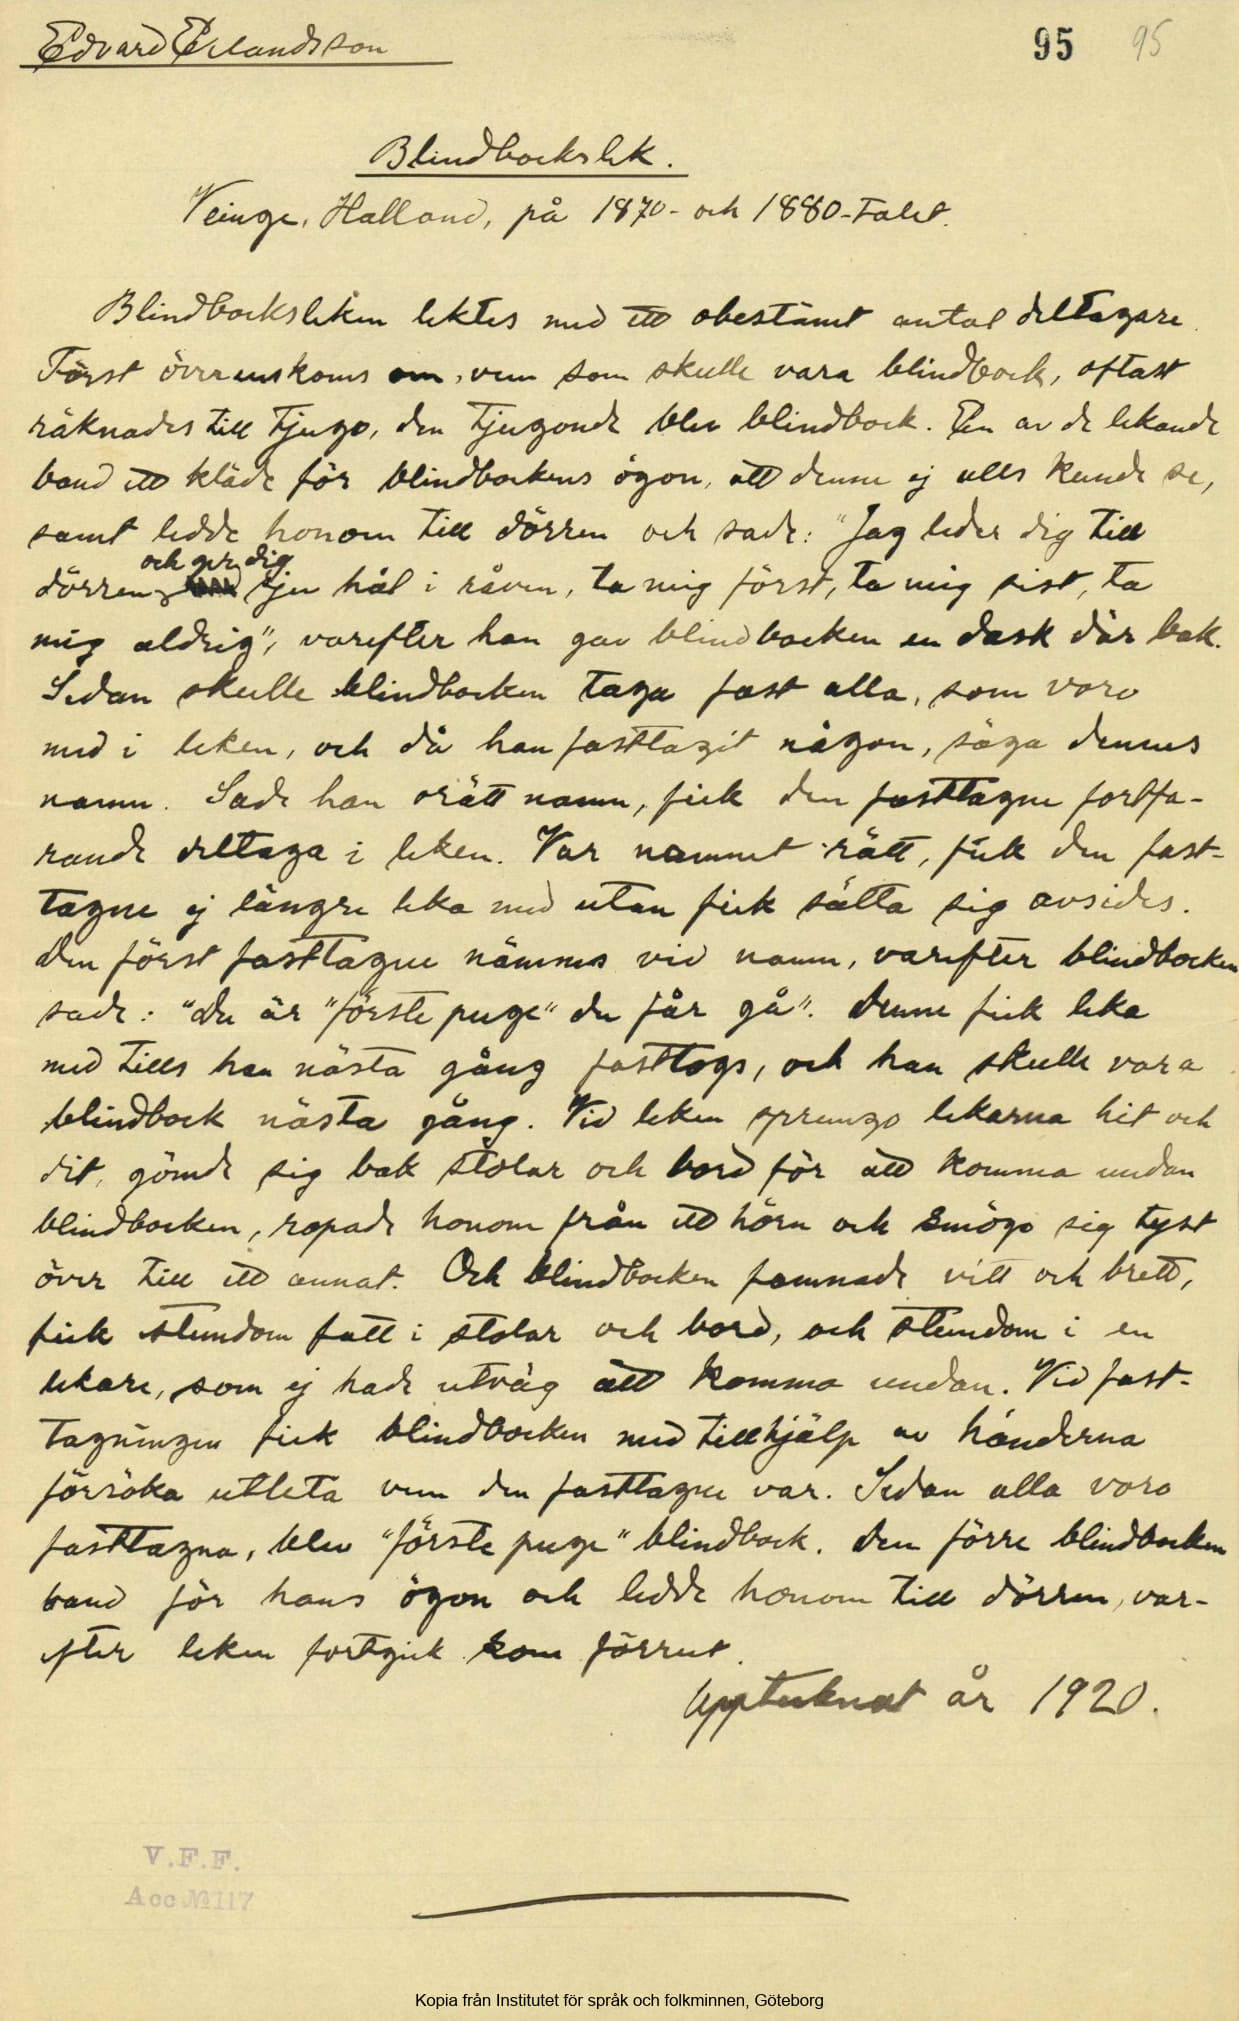 Edvard Erlandsson
95 95
Blindbockslek.
Veinge, Halland, på 1870- och 1880-talet.
Blindbocksleken lektes med ett obestämt antal deltagare.
Först överenskoms om, vem som skulle vara blindbock, oftast
räknades till tjugo, den tjugonde blev blindbock. En av de lekande
band ett kläde för blindbockens ögon, att denne ej alls kunde se,
samt ledde honom till dörren och sade: "Jag leder dig till
och ger dig
dörren, sju hål i råven, ta mig först, ta mig sist, ta
mig aldrig", varefter han gav blindbocken en dask där bak.
Sedan skulle blindbocken taga fast alla, som voro
med i leken, och då han fasttagit någon, säga dennes
namn. Sade han orätt namn, fick den fasttagne fortfa-
rande deltaga i leken. Var namnet rätt, fick den fast-
tagne ej längre leka med utan fick sätta sig avsides.
Den först fasttagne nämnes vid namn, varefter blindbocken
sade: "Du är "förste puge" du får gå". Denne fick leka
med tills han nästa gång fasttogs, och han skulle vara
blindbock nästa gång. Vid leken sprungo lekarna hit och
dit, gömde sig bak stolar och bord för att komma undan
blindbocken, ropade honom från ett hörn och smögo sig tyst
över till ett annat. Och blindbocken famnade vitt och brett,
fick stundom fatt i stolar och bord, och stundom i en
lekare, som ej hade utväg att komma undan. Vid fast-
tagningen fick blindbocken med tillhjälp av händerna
försöka utleta vem den fasttagne var. Sedan alla voro
fasttagna, blev "förste puge" blindbock. Den förre blindbocken
band för hans ögon och ledde honom till dörren, var-
efter leken fortgick som förrut.
Upptecknat år 1920.
V.F.F.
Acc № 117
Kopia från Institutet för språk och folkminnen, Göteborg